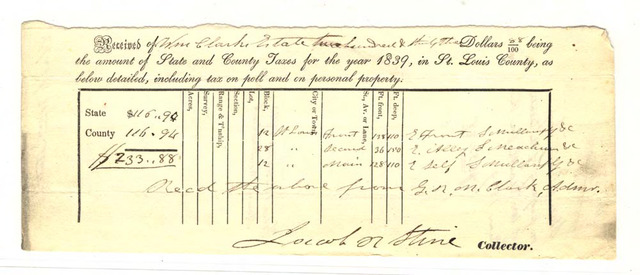 Received of Wm Clarks Estate two hundred & thirty three Dollars 88/100 being
the amount of State and County Taxes for the year 1839, in St. Louis County, as
below detailed, including tax on poll and on personal property.
Acres, Survey, Range & T'nship, Section, Lot, Block, City or Town, St., Av. or Lane, Ft. front, Ft. deep,
State $116..94
County 116..94
$233..88
12 St Louis Front 110 E Front S Mullanphy &c
28 " Second 36 110 E Alley S &c
12 " Main 128 110 E Self S Mullanphy &c
Recd the above from G. R. H. Clark, Admr.
Jacob R Stine Collector.